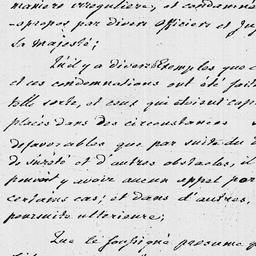 manière irrégulière, et condamné
-apropos par divers Officiers et Ju
Sa Majesté;
Qu'il y a divers Exemples que
et ces condamnations ont été fait
telle sorte, et ceux qui étoient
placés dans des circonstances
defavorables que par suite du
de sureté et d'autres obstacles, il
pouvoit y avoir aucun appel par
certains cas; et dans d'autres,
poursuite ulterieure;
Que le soussigné présume q